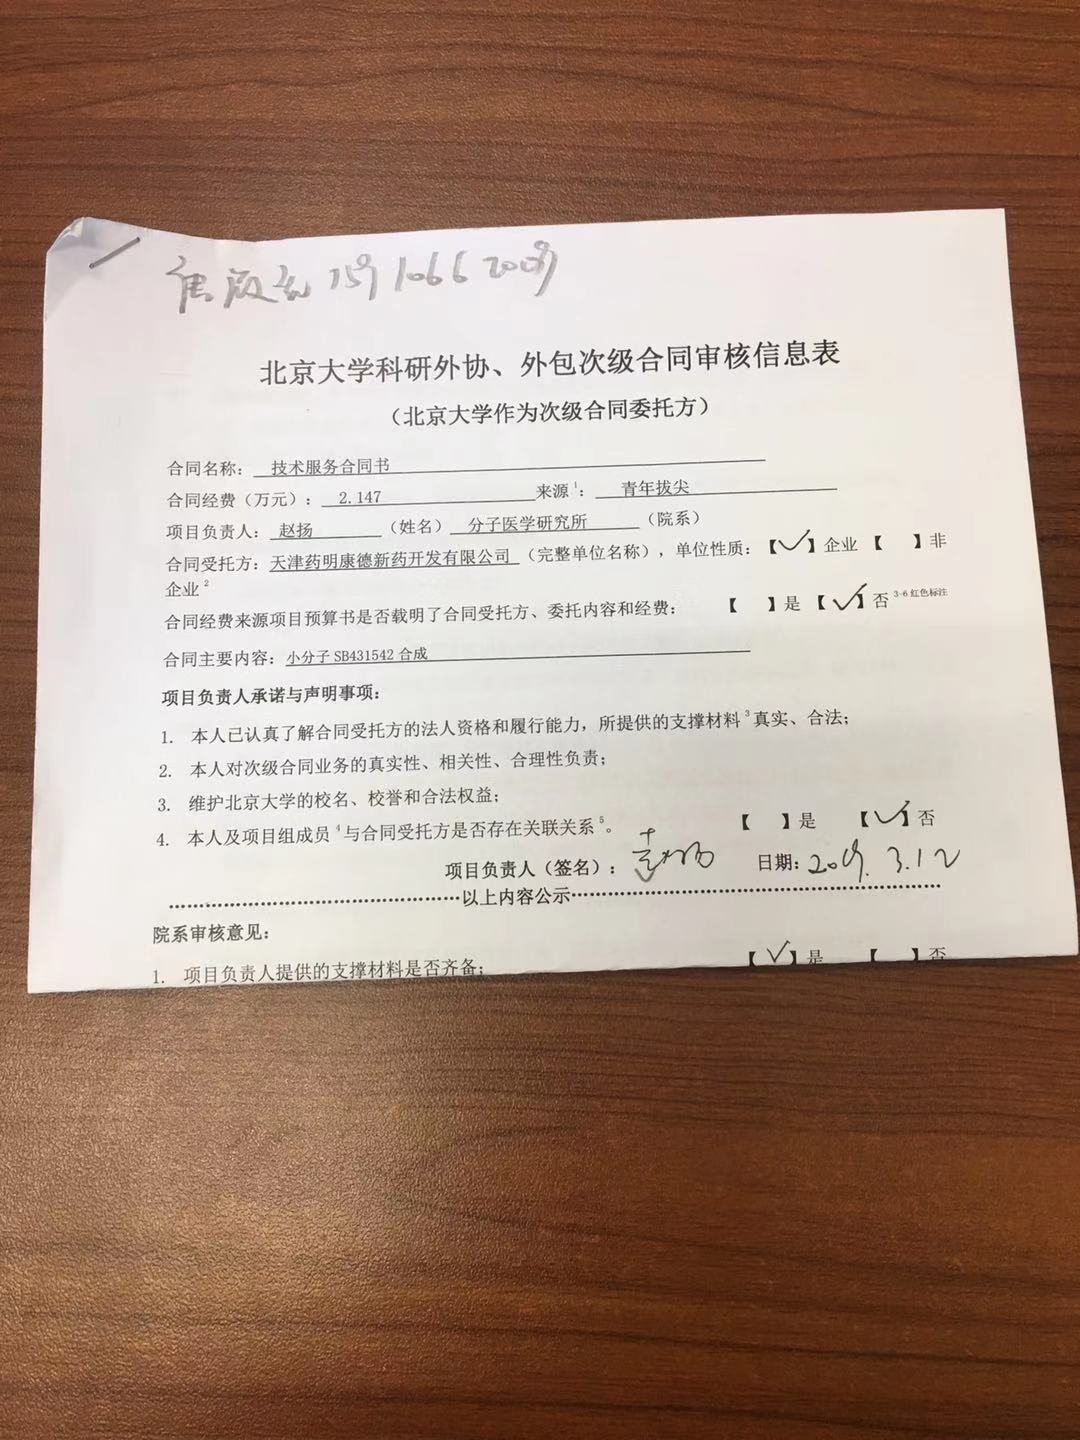 焦
北京大学科研外协、外包次级合同审核信息表
（北京大学作为次级合同委托方）
合同名称： 技术服务合同书
合同经费（万元）： 2.147 来源1： 青年拔尖
项目负责人： 赵扬 （姓名） 分子医学研究所 （院系）
合同受托方：天津药明康德新药开发有限公司（完整单位名称），单位性质：【✓】企业【 】非
企业2
合同经费来源项目预算书是否载明了合同受托方、委托内容和经费： 【 】是【✓】否 3-6 红色标注
合同主要内容：小分子 SB431542 合成
项目负责人承诺与声明事项：
1. 本人已认真了解合同受托方的法人资格和履行能力，所提供的支撑材料3真实、合法；
2. 本人对次级合同业务的真实性、相关性、合理性负责；
3. 维护北京大学的校名、校誉和合法权益；
4. 本人及项目组成员4与合同受托方是否存在关联关系5。 【 】是 【✓】否
项目负责人（签名）：赵扬 日期：2019.3.12
……………………以上内容公示……………………
院系审核意见：
1. 项目负责人提供的支撑材料是否齐备； 【✓】是 【 】否